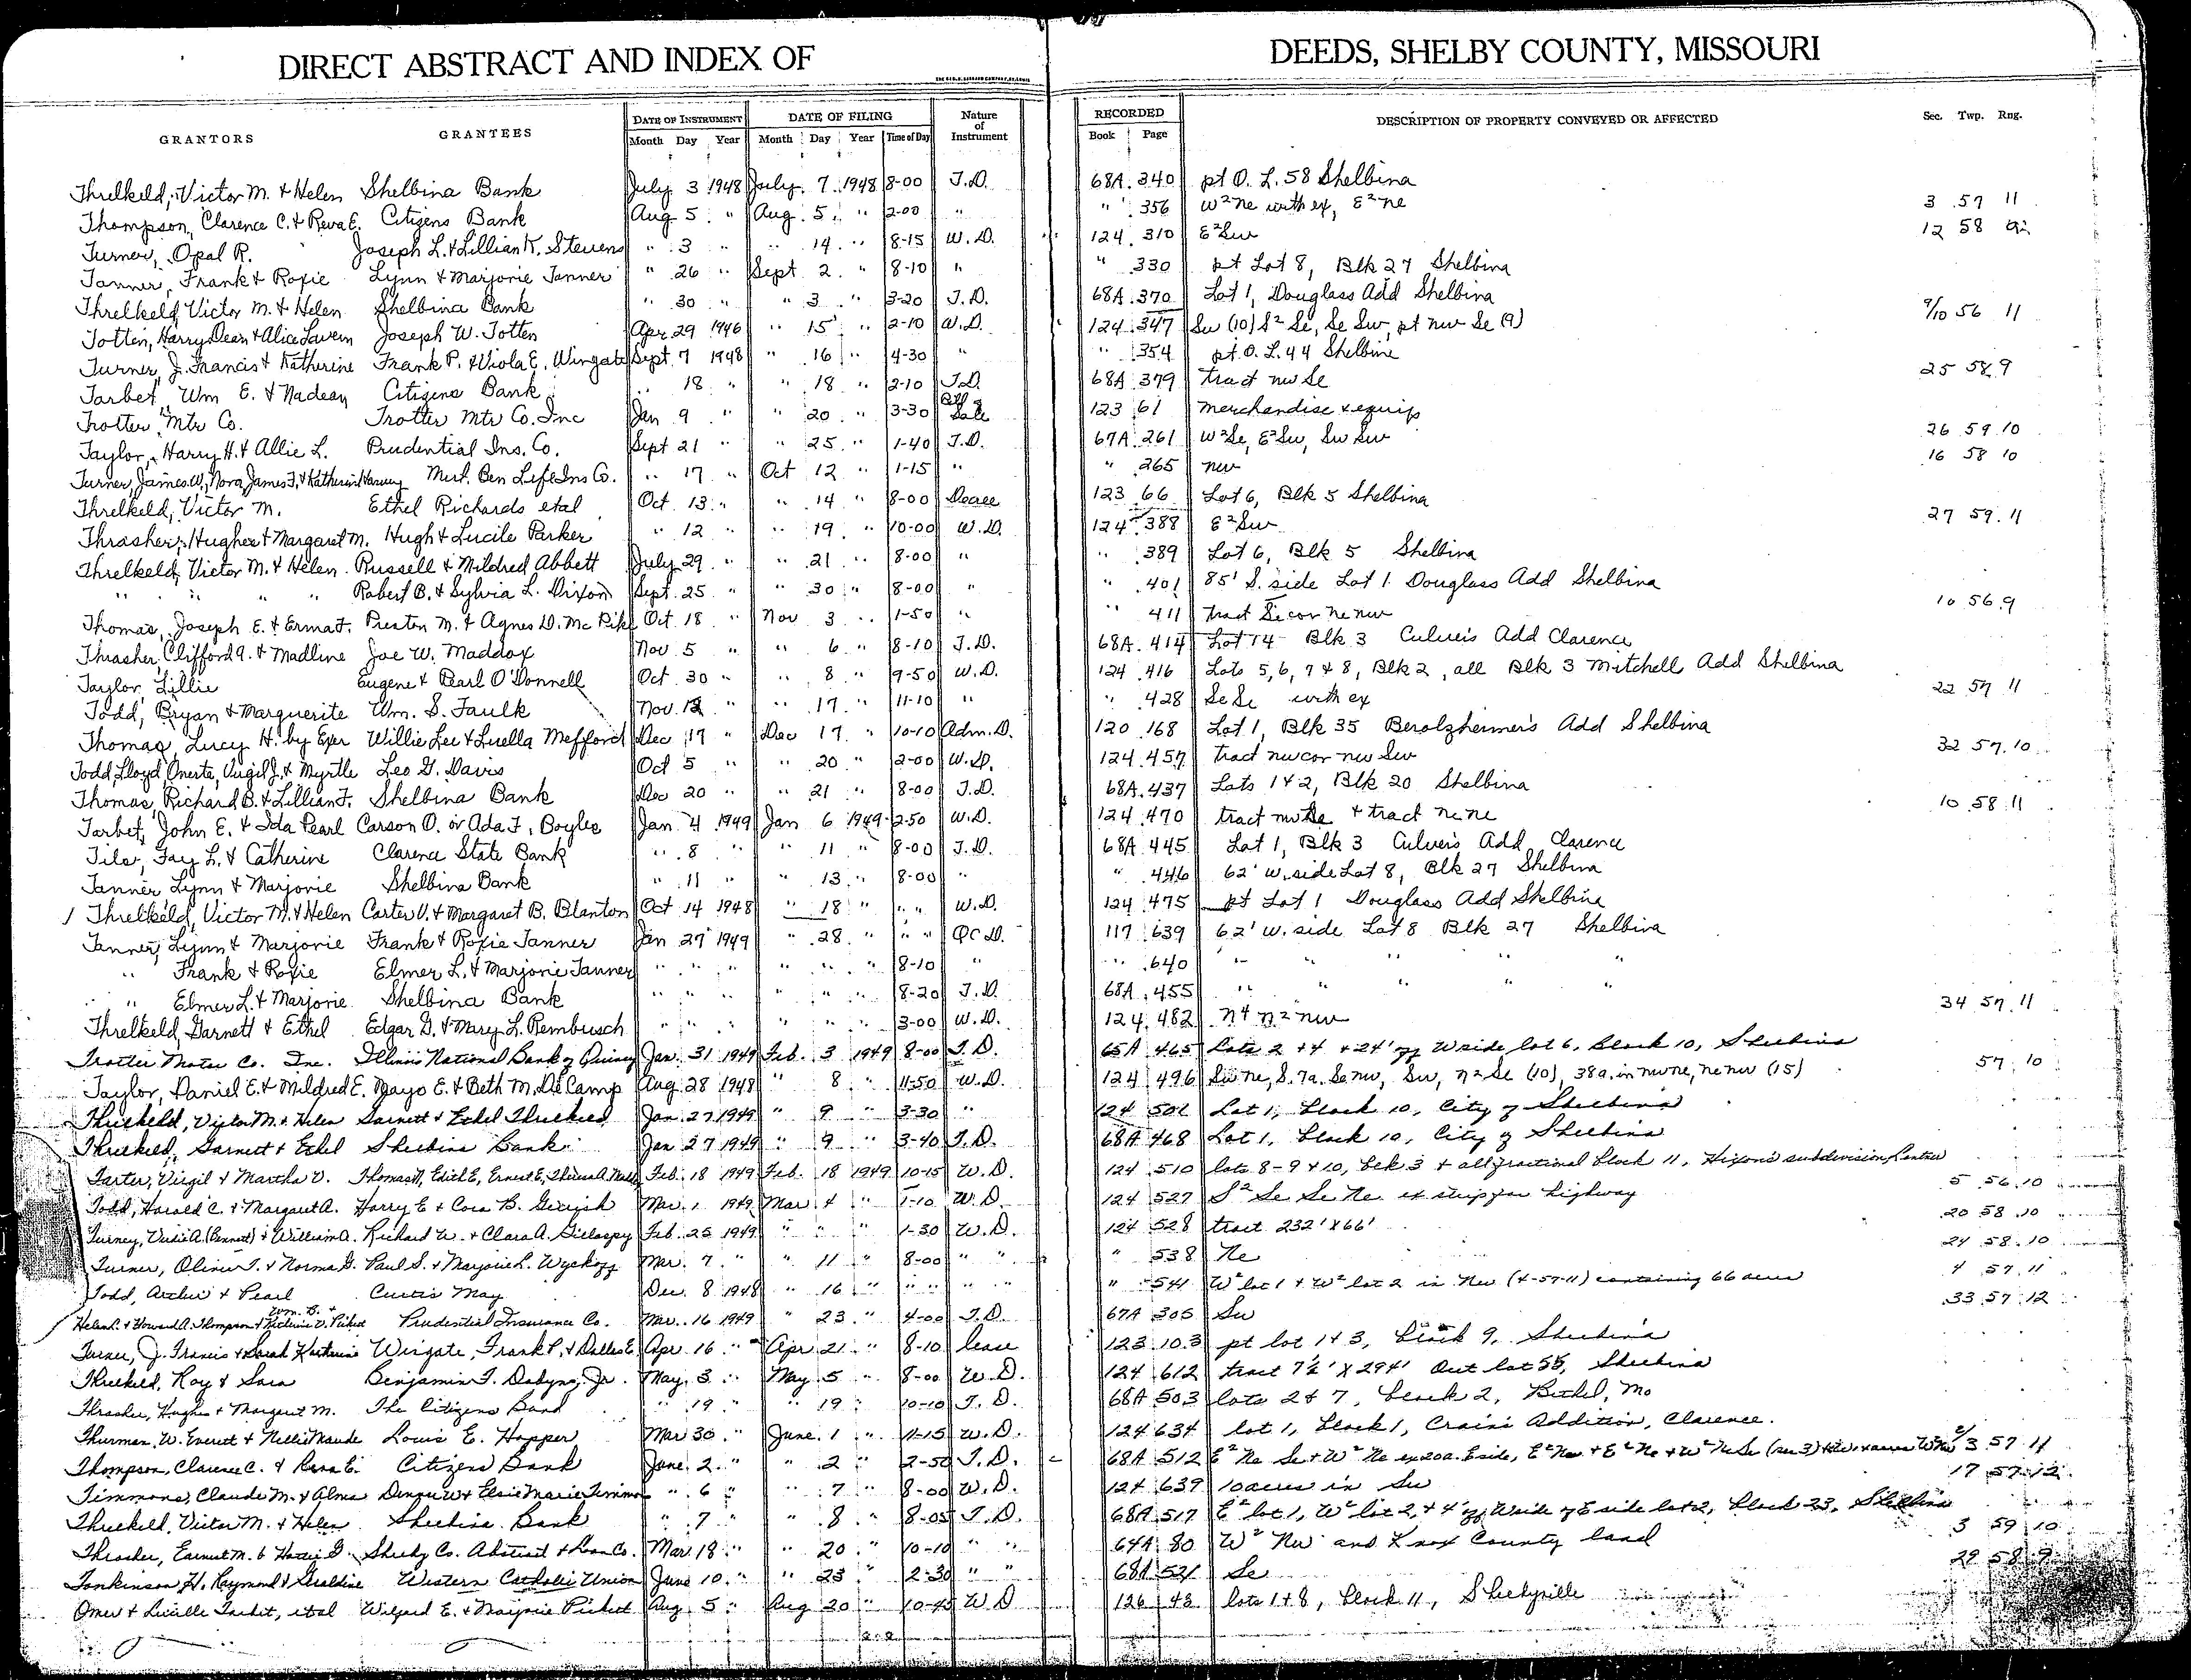 DIRECT ABSTRACT AND INDEX OF DEEDS, SHELBY COUNTY, MISSOURI
GRANTORS GRANTEES DATE OF INSTRUMENT DATE OF FILING Nature of Instrument RECORDED DESCRIPTION OF PROPERTY CONVEYED OR AFFECTED Sec. Twp. Rng.
Month Day Year Month Day Year Time of Day Book Page
Threlkeld, Victor M. & Helen Shelbina Bank July 3 1948 July 7 1948 8-00 T.D. 68A 340 pt O. L. 58 Shelbina
Thompson, Clarence C. & Reva E. Citizens Bank Aug 5 " Aug. 5 " 2-00 " " 356 W²ne with ex, E²ne 3 57 11
Turner, Opal R. Joseph L. & Lillian K. Stevens " 3 " " 14 " 8-15 W.D. 124 310 E²Sw 12 58
Tanner, Frank & Roxie Lynn & Marjorie Tanner " 26 " Sept 2 " 8-10 " " 330 pt Lot 8, Blk 27 Shelbina
Threlkeld, Victor M. & Helen Shelbina Bank " 30 " " 3 " 3-20 T.D. 68A 370 Lot 1, Douglass Add Shelbina
Totten, Harry Dean & Alice Lavern Joseph W. Totten Apr 29 1946 " 15 " 2-10 W.D. 124 347 Sw (10) S² Se, Se Sw, pt nw Se (9) 9/10 56 11
Turner, J. Francis & Katherine Frank P. & Viola E. Wingate Sept 7 1948 " 16 " 4-30 " " 354 pt O. L. 44 Shelbina
Tarbet, Wm E. & Nadean Citizens Bank " 18 " " 18 " 2-10 T.D. 68A 379 tract nw Se 25 58 9
Trotter Mtr Co. Trotter Mtr Co. Inc Jan 9 " " 20 " 3-30 Bill of Sale 123 61 merchandise & equip
Taylor, Harry H. & Allie L. Prudential Ins. Co. Sept 21 " " 25 " 1-40 T.D. 67A 261 W²Se, E²Sw, Sw Sw 26 59 10
Turner, James W., Nora, James F. & Katherine Harvey Mut. Ben Life Ins Co. " 17 " Oct 12 " 1-15 " " 265 nw 16 58 10
Threlkeld, Victor M. Ethel Richards etal Oct 13 " " 14 " 8-00 Decree 123 66 Lot 6, Blk 5 Shelbina
Thrasher, Hughes & Margaret M. Hugh & Lucile Parker " 12 " " 19 " 10-00 W.D. 124 388 E²Sw 27 59 11
Threlkeld, Victor M. & Helen Russell & Mildred Abbett July 29 " " 21 " 8-00 " " 389 Lot 6, Blk 5 Shelbina
" " " " Robert B. & Sylvia L. Dixon Sept. 25 " " 30 " 8-00 " " 401 85' S. side Lot 1 Douglass Add Shelbina
Thomas, Joseph E. & Erma F. Preston M. & Agnes D. Mc Pike Oct. 18 " Nov 3 " 1-50 " " 411 tract Se cor ne nw 10 56 9
Thrasher, Clifford A. & Madline Joe W. Maddox Nov 5 " " 6 " 8-10 T.D. 68A 414 Lot 14 Blk 3 Culver's Add Clarence
Taylor, Lillie Eugene & Pearl O'Donnell Oct 30 " " 8 " 9-50 W.D. 124 416 Lots 5, 6, 7 & 8, Blk 2, all Blk 3 Mitchell Add Shelbina
Todd, Bryan & Marguerite Wm. S. Faulk Nov. 12 " " 17 " 11-10 " " 428 Se Se with ex 22 57 11
Thomas, Lucy H. by Exer Willie Lee & Luella Mefford Dec 17 " Dec 17 " 10-10 Adm. D. 120 168 Lot 1, Blk 35 Berolzheimer's Add Shelbina
Todd, Lloyd, Onerta, Virgil J. & Myrtle Leo G. Davis Oct 5 " " 20 " 2-00 W.D. 124 457 tract nw cor nw Sw 32 57 10
Thomas, Richard B. & Lillian F. Shelbina Bank Dec 20 " " 21 " 8-00 T.D. 68A 437 Lots 1 & 2, Blk 20 Shelbina
Tarbet, John E. & Ida Pearl Carson O. or Ada F. Boyles Jan 4 1949 Jan 6 1949 2-50 W.D. 124 470 tract nw Se & tract ne ne 10 58 11
Tile, Fay L. & Catherine Clarence State Bank " 8 " " 11 " 8-00 T.D. 68A 445 Lot 1, Blk 3 Culver's Add Clarence
Tanner, Lynn & Marjorie Shelbina Bank " 11 " " 13 " 8-00 " " 446 62' W. side Lot 8, Blk 27 Shelbina
Threlkeld, Victor M. & Helen Carter V. & Margaret B. Blanton Oct 14 1948 " 18 " " " W.D. 124 475 pt Lot 1 Douglass Add Shelbina
Tanner, Lynn & Marjorie Frank & Roxie Tanner Jan 27 1949 " 28 " " " QC D. 117 639 62' W. side Lot 8 Blk 27 Shelbina
" Frank & Roxie Elmer L. & Marjorie Tanner " " " " " " 8-10 " " 640 " " " " "
" Elmer L. & Marjorie Shelbina Bank " " " " " " 8-20 T.D. 68A 455 " " " " "
Threlkeld, Garnett & Ethel Edgar G. & Mary L. Rembusch " " " " " " 3-00 W.D. 124 482 n⁴ n² nw 34 57 11
Trotter Motor Co. Inc. Illinois National Bank of Quincy Jan. 31 1949 Feb. 3 1949 8-00 T.D. 65A 465 Lots 2 & 4 & 24' off W side lot 6, Block 10, Shelbina
Taylor, Daniel E. & Mildred E. Mayo E. & Beth M. DeCamp Aug 28 1948 " 8 " 11-50 W.D. 124 496 Sw ne, S. 7a. Se nw, Sw, n² Se (10), 38a. in nw ne, ne nw (15) 57 10
Threlkeld, Victor M. & Helen Garnett & Ethel Threlkeld Jan. 27 1949 " 9 " 3-30 " 124 501 Lot 1, Block 10, City of Shelbina
Threlkeld, Garnett & Ethel Shelbina Bank Jan 27 1949 " 9 " 3-40 T.D. 68A 468 Lot 1, Block 10, City of Shelbina
Tarter, Virgil & Martha V. Thomas, Edith E, Ernest E, Feb. 18 1949 Feb. 18 1949 10-15 W.D. 124 510 lots 8-9 & 10, blk 3 & all fractional block 11, Hixon's subdivision,
Todd, Harold C. & Margaret A. Harry E & Cora B. Mar. 1 1949 Mar 4 " 1-10 W.D. 124 527 S² Se Se Ne ex strip for highway 5 56 10
Turney, (Bennett) & William A. Richard W. & Clara A. Gillaspy Feb. 25 1949 " " " 1-30 W.D. 124 528 tract 232' X 66' 20 58 10
Turner, Oliver T. & Norma G. Paul S. & Marjorie L. Wyckoff Mar. 7 " " 11 " 8-00 " " " 538 Ne 24 58 10
Todd, Archie & Pearl Curtis May Dec. 8 1948 " 16 " " " " " " 541 W² lot 1 & W² lot 2 in Nw (4-57-11) containing 66 acres 4 57 11
Helen A. & Howard A. Thompson & Wm. B. & Pickett Prudential Insurance Co. Mar. 16 1949 " 23 " 4-00 T.D. 67A 305 Sw 33 57 12
Turner, J. Francis & Sarah Katherine Wingate, Frank P. & Dallas E. Apr 16 " Apr 21 " 8-10 lease 123 103 pt lot 1 & 3, block 9, Shelbina
Threlkeld, Roy & Sara Benjamin F. Dobyns, Jr. May 3 " May 5 " 8-00 W.D. 124 612 tract 7½' X 294' Out lot 55, Shelbina
Thrasher, Hughes & Margaret M. The Citizens Bank " 19 " " 19 " 10-10 T.D. 68A 503 lots 2 & 7, block 2, Bethel, Mo
Thurman, W. Everett & Nellie Maude Louis E. Hopper Mar 30 " June 1 " 11-15 W.D. 124 634 lot 1, block 1, Crain's Addition, Clarence.
Thompson, Clarence C. & Reva E. Citizens Bank June 2 " " 2 " 2-50 T.D. 68A 512 E² Ne Se & W² Ne ex 20a. E side, 2/3 57 11
Timmons, Claude M. & Alma & Elsie Marie Timmons " 6 " " 7 " 8-00 W.D. 124 639 10 acres in Sw 17 57 12
Threlkeld, Victor M. & Helen Shelbina Bank " 7 " " 8 " 8-05 T.D. 68A 517 E² lot 1, W² lot 2, & 4' off W side of E side lot 2, block 23, Shelbina
Thrasher, Earnest M. & Hattie G. Shelby Co. Abstract & Loan Co. Mar 18 " " 20 " 10-10 " " 64A 80 W² Nw and Knox County land 3 59 10
Tonkinson, H. Raymond & Geraldine Western Catholic Union June 10 " " 23 " 2-30 " " 68A 521 Se 29 58 9
Omer & Lucille Tarbet, etal Wilford E. & Marjorie Pickett Aug 5 " Aug 20 " 10-45 W.D 126 43 lots 1 & 8, block 11, Shelbyville